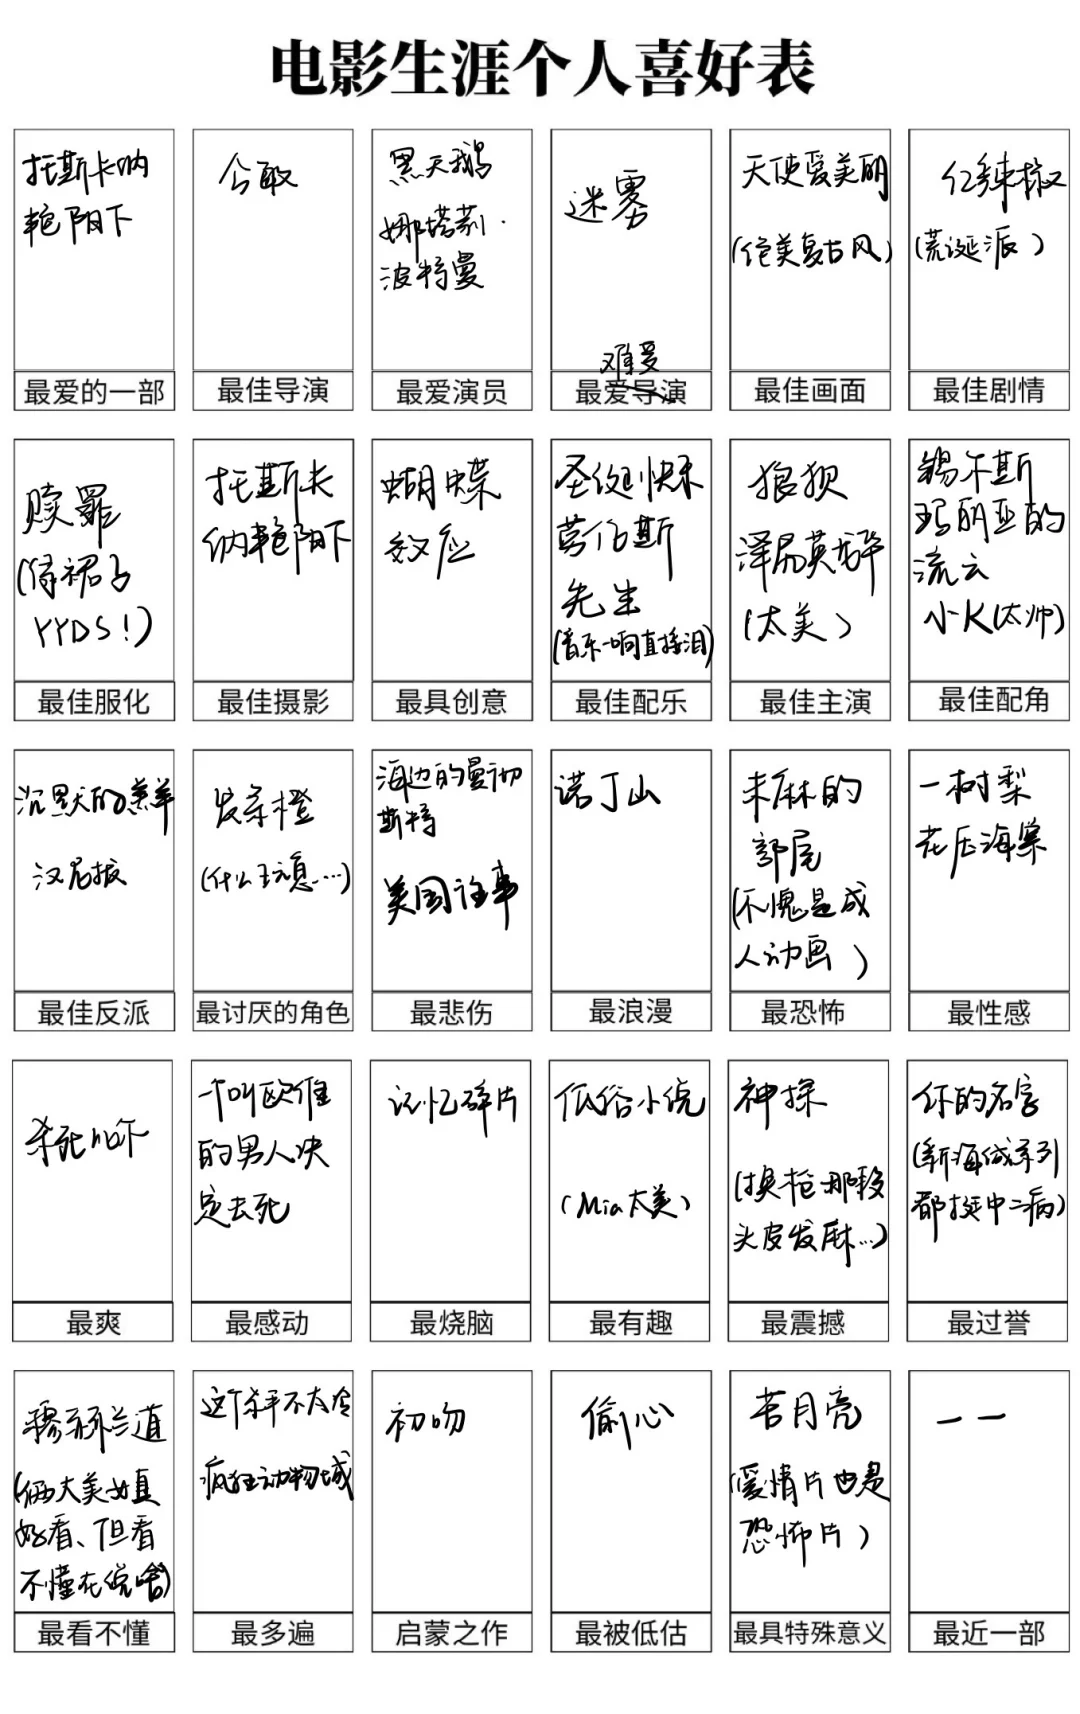 电影生涯个人喜好表
托斯卡纳
艳阳下
最爱的一部
今敏
最佳导演
黑天鹅
娜塔莉·
波特曼
最爱演员
迷雾
难受
最爱导演
天使爱美丽
(绝美复古风)
最佳画面
红辣椒
(荒诞派)
最佳剧情
赎罪
(绿裙子
YYDS!)
最佳服化
托斯卡
纳艳阳下
最佳摄影
蝴蝶
效应
最具创意
圣诞快乐
劳伦斯
先生
(音乐一响直接泪)
最佳配乐
狼狈
泽尻英龙华
(太美)
最佳主演
锡尔斯
玛丽亚的
流云
小K(太帅)
最佳配角
沉默的羔羊
汉尼拔
最佳反派
发条橙
(什么玩意…)
最讨厌的角色
海边的曼彻
斯特
美国往事
最悲伤
诺丁山
最浪漫
未麻的
部屋
(不愧是成
人动画)
最恐怖
一树梨
花压海棠
最性感
杀死比尔
最爽
一个叫欧维
的男人决
定去死
最感动
记忆碎片
最烧脑
低俗小说
(Mia太美)
最有趣
神探
(换枪那段
头皮发麻…)
最震撼
你的名字
(新海诚系列
都挺中二病)
最过誉
穆赫兰道
(俩大美女真
好看、但看
不懂在说啥)
最看不懂
这个杀手不太冷
疯狂动物城
最多遍
初吻
启蒙之作
偷心
最被低估
苦月亮
(爱情片也是
恐怖片)
最具特殊意义
一一
最近一部